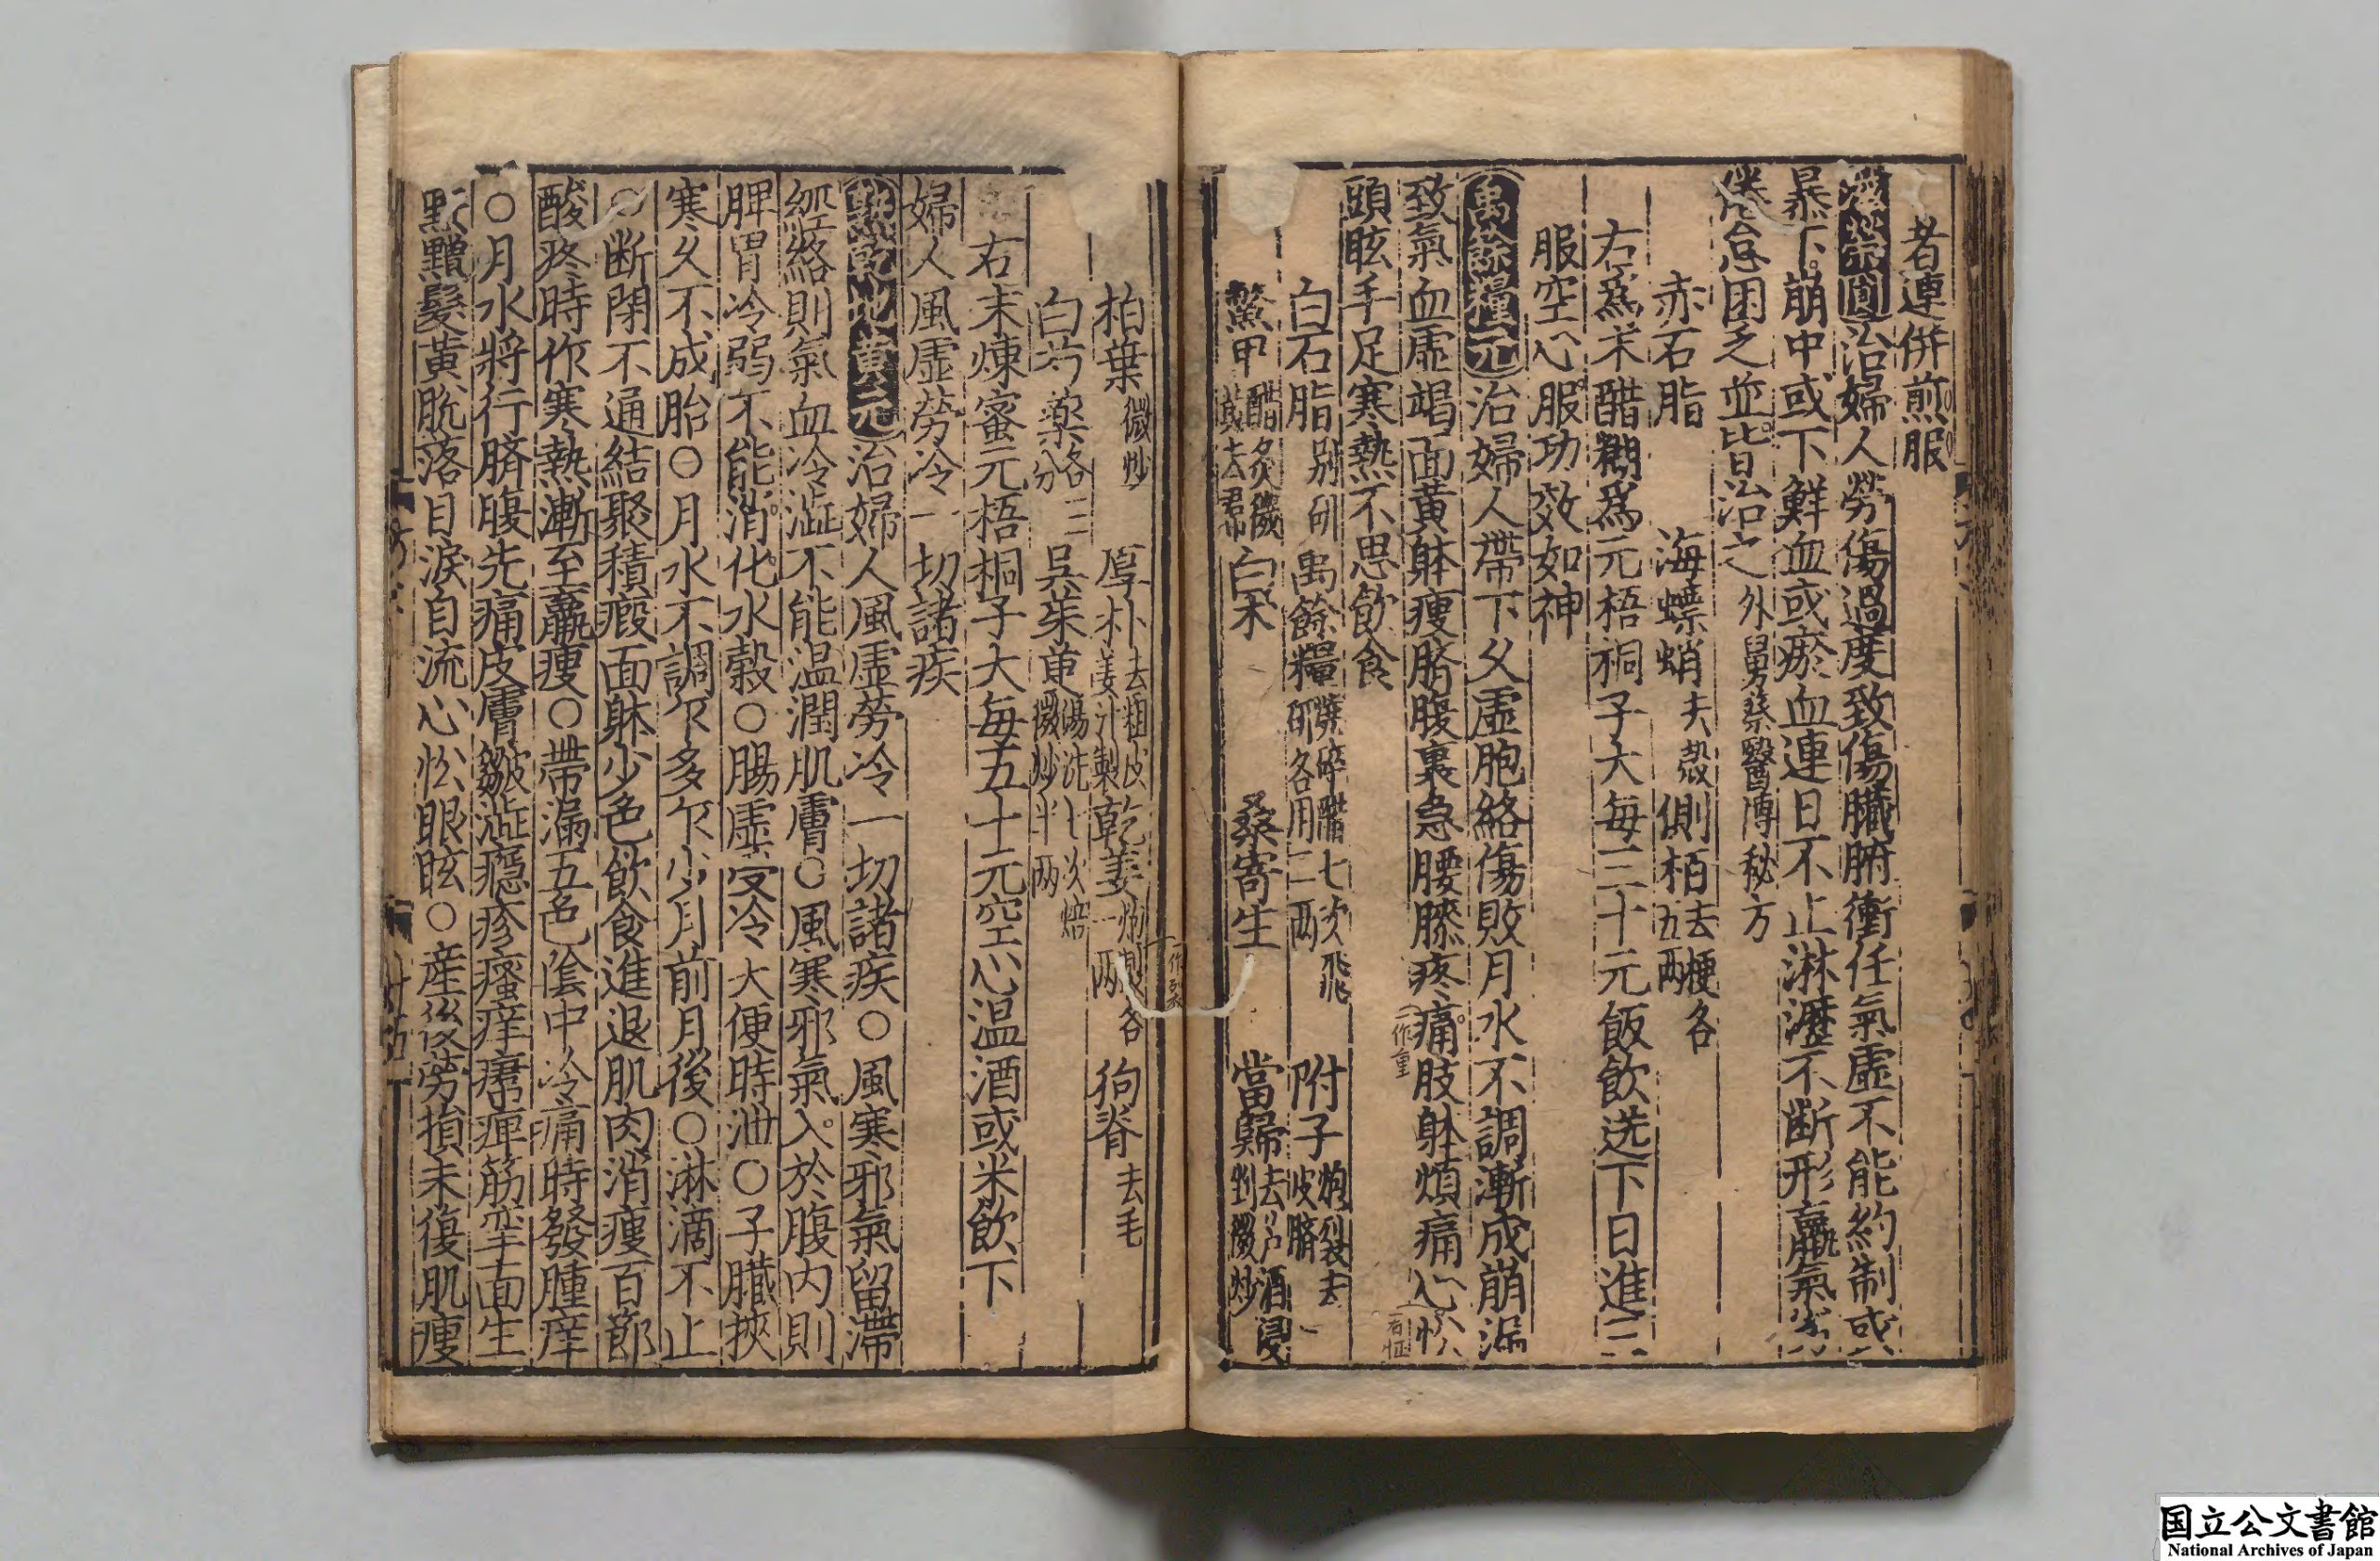 者連併煎服
治婦人勞傷過度致傷臟腑衝任氣虛不能約制或
暴下崩中或下鮮血或瘀血連日不止淋瀝不断形羸氣
倦怠困乏並皆治之 外舅蔡醫博秘方
赤石脂 海螵蛸去殼 側栢去梗各五兩
右爲末醋糊爲元梧桐子大每三十元飯飲送下日進三
服空心服功效如神
禹餘糧元治婦人帶下久虛胞絡傷敗月水不調漸成崩漏
致氣血虛竭面黃躰瘦臍腹裏急腰膝疼痛肢躰煩痛心忪
一作重
頭眩手足寒熱不思飲食
白石脂別研 禹餘糧 醋七次飛研各用二兩 附子炮裂去皮臍
鱉甲醋炙 去裙 白朮 桑寄生 當歸去芦酒浸 微炒
柏葉微炒 厚朴去粗皮姜汁製 乾姜 一兩 狗脊去毛
白芍藥各三分 吳茱萸湯洗七次焙微炒半两
右末煉蜜元梧桐子大每五十元空心温酒或米飲下
婦人風虛勞冷一切諸疾
熟乾地黃元治婦人風虛勞冷一切諸疾○風寒邪氣留滯
經絡則氣血冷澁不能温潤肌膚○風寒邪氣入於腹内則
脾胃冷弱不能消化水穀○腸虛受冷大便時泄○子臟挾
寒久不成胎○月水不調乍多乍少月前月後○淋滴不止
○断閉不通結聚積瘕面躰少色飲食進退肌肉消瘦百節
酸疼時作寒熱漸至羸瘦○帶漏五色陰中冷痛時發腫痒
○月水將行臍腹先痛皮膚皺澁癮疹瘙痒𤸷痺筋挛面生
䵟䵳髮黃脫落目淚自流心忪眼眩○産後勞損未復肌瘦
国立公文書館
National Archives of Japan